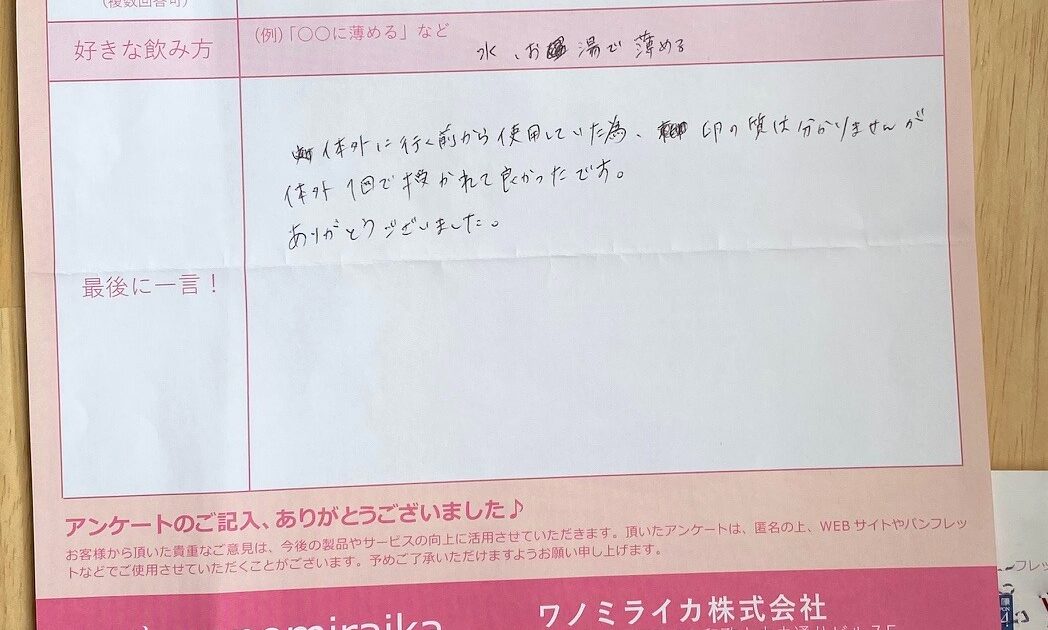 (複数回答可)
好きな飲み方
(例)「○○に薄める」など
水、お湯で薄める
体外に行く前から使用していた為、卵の質は分かりませんが
体外1回で授かれて良かったです。
ありがとうございました。
最後に一言！
アンケートのご記入、ありがとうございました♪
お客様から頂いた貴重なご意見は、今後の製品やサービスの向上に活用させていただきます。頂いたアンケートは、匿名の上、WEBサイトやパンフレッ
トなどでご使用させていただくことがございます。予めご了承いただけますようお願い申し上げます。
フレッ
ワノミライカ株式会社